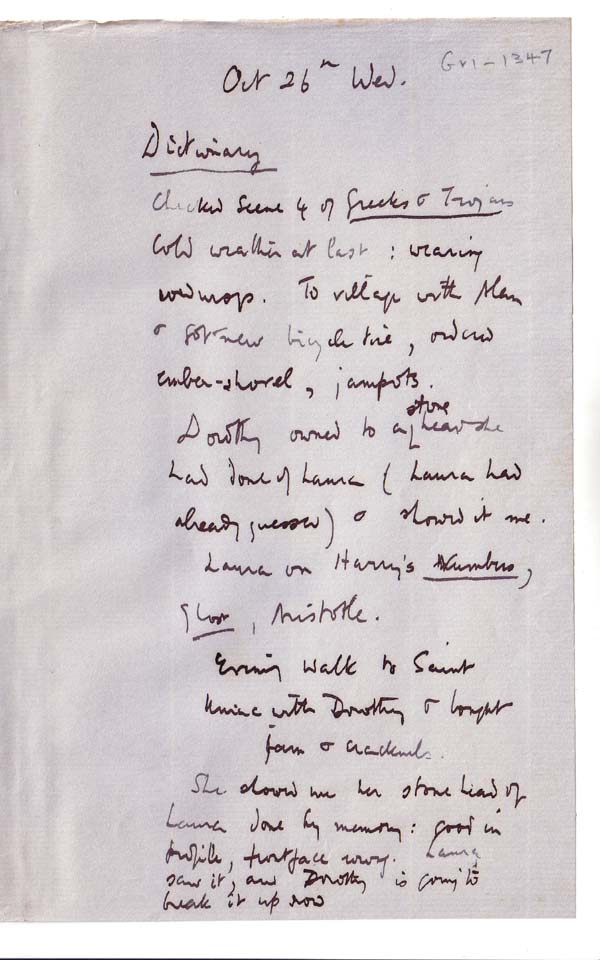 Oct 26th Wed.
GV1-1347
Dictionary
Checked Scene 4 of Greeks & Trojans
Cold weather at last : wearing
. To village with Alan
& got new bicycle tire, ordered
ember-shovel, jampots.
Dorothy owned to a stone head she
had done of Laura ( Laura had
already guessed) & showed it me.
Laura on Harry's Numbers,
, Aristotle.
Evening walk to Saint
with Dorothy & bought
jam & cracknels.
She showed me her stone head of
Laura done by memory: good in
profile, frontface wrong. Laura
saw it, and Dorothy is going to
break it up now